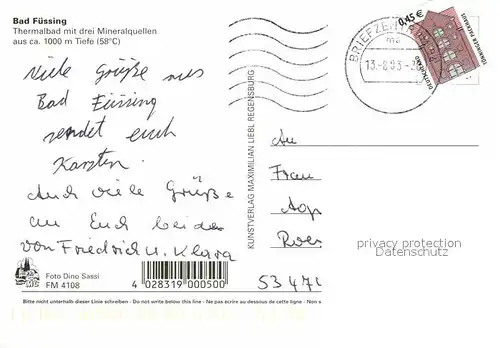 Bad Füssing
Thermalbad mit drei Mineralquellen
aus ca. 1000 m Tiefe (58°C)
Viele Grüße aus
Bad Füssing
sendet euch
Karsten.
Auch viele Grüße
an Euch beide
von Friedrich u. Klara
Foto Dino Sassi
FM 4108
4 028319 000500
Bitte nicht unterhalb dieser Linie schreiben - Do not write below this line - Ne pas ecrire au-dessous de cette ligne - Non s
KUNSTVERLAG MAXIMILIAN LIEBL REGENSBURG
BRIEFZENTRUM
0,45 €
TÖNNINGER PACKHAUS
DEUTSCHLAND
An
Frau
privacy protection
Datenschutz
53471